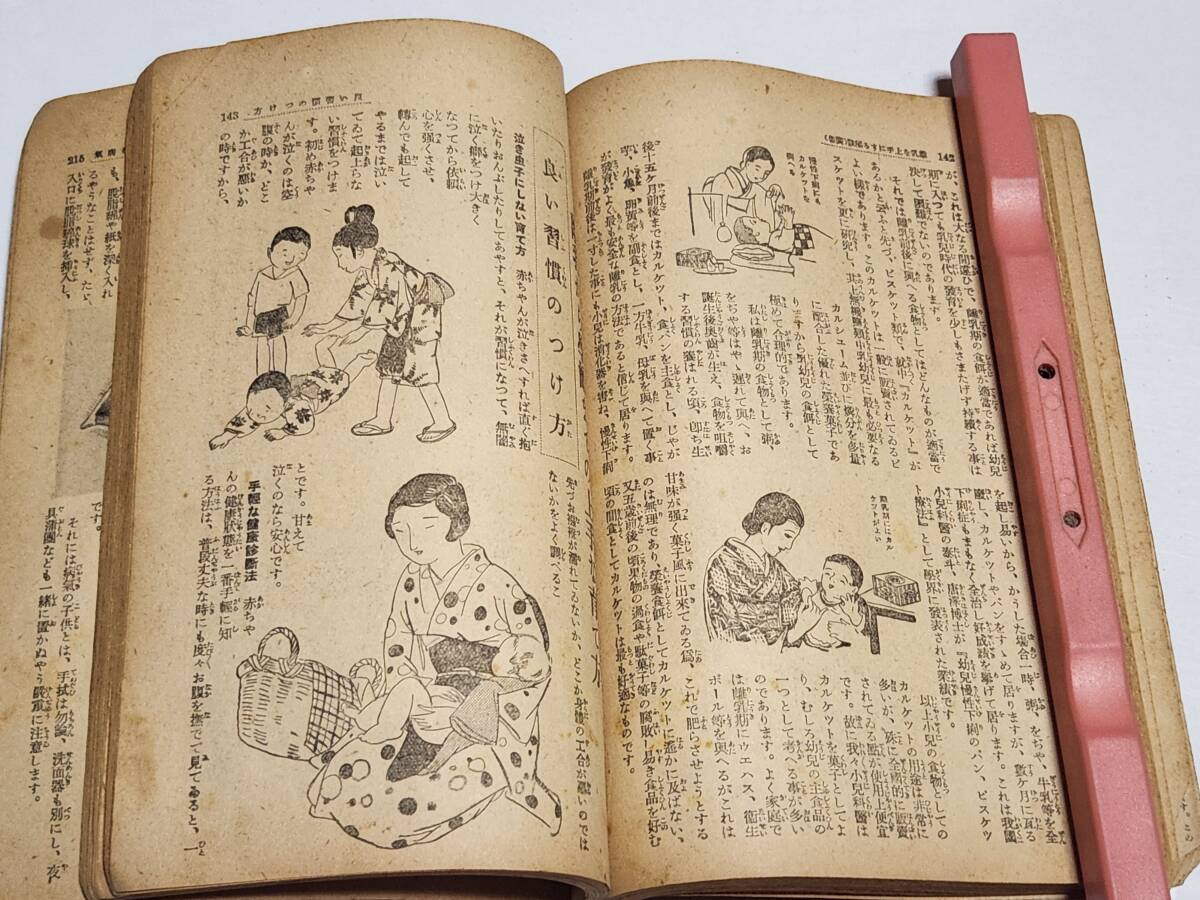 離乳を上手にする秘訣(廣告) 142
が、これは大なる間違ひで、離乳期の食餌が適當であれば幼兒
期に入つても乳兒時代の發育を少しもさまたげず持續する事は
決して困難でないのであります。
それでは離乳前後に與へる食物としてはどんなものが適當で
あるかと云ふと先づ、ビスケツト類で、就中『カルケツト』が
よい様であります。このカルケツトは一般に販賣されてゐるビ
スケツトを更に研究し、其上無機鹽類中乳幼兒に最も必要なる
カルシユーム並びに燐分を多量
に配合した優れた榮養菓子であ
りますから乳幼兒の食餌として
極めて合理的であります。
私は離乳期の食物として粥、
をぢや等はやゝ遲れて與へ、お
誕生後奥齒が生え、食物を咀嚼
する習慣の養はれる頃、卽ち生
後十五ケ月前後まではカルケツト、食パンを主食とし、じやが
芋、小魚、
慢性下痢にも
カルケツトを
與へる
を起し易いから、かうした場合一時、粥、をぢや、牛乳等を全
廢し、カルケツトやパンをすゝめて居りますが、數ケ月に亙る
下痢症もまもなく全治し好成績を擧げて居ります。これは我國
小兒科醫の泰斗、唐澤博士が『幼兒慢性下痢のパン、ビスケツ
ト療法』として學界に發表された業績です。
離乳期にはカル
ケツトがよい
以上小兒の食物としての
カルケツトの用途は非常に
多いが、殊に全國的に販賣
されてゐる點が使用上便宜
です。故に我々小兒科醫は
カルケツトを菓子としてよ
り、むしろ幼兒の主食品の
一つとして考へる事が多い
のであります。よく家庭で
は離乳期にウエハス、衛生
ボール等を與へるがこれは
甘味が強く菓子風に出來てゐる爲、これで肥らさせようとする
のは無理であり、榮養食餌としてカルケツトに遥かに及ばない、
又五歲前後の頃果物の過食や駄菓子等の腐敗し易き食品を好む
頃の間食としてカルケツトは最も好適なものです。
良い習慣のつけ方 143
良い習慣のつけ方
泣き虫子にしない育て方 赤ちやんが泣きさへすれば直ぐ抱
いたりおんぶしたりしてあやすと、それが習慣になつて、無闇
に泣く癖をつけ大きく
なつてから依頼
心を強くさせ、
轉んでも起して
やるまでは泣い
てゐて起上らな
い習慣をつけま
す。初め赤ちや
んが泣くのは空
腹の時か、どこ
か工合が惡いか
の時ですから、
先づお襁褓が濡れてゐないか、どこか身體の工合が惡いのでは
ないかをよく調べるこ
とです。甘えて
泣くのなら安心です。
手輕な健康診斷法 赤ちや
んの健康狀態を一番手輕に知
る方法は、普段丈夫な時にも度々お腹を撫でて見てゐると、一
215
も、脫脂綿や紙を深く入れ
るやうなことはせず、たゞ、
入口に脫脂綿球を挿入し、
です。
それには病氣の子供とは、手拭は勿論、洗面器も別にし、夜
具蒲團なども一緒に置かぬやう嚴重に注意します。